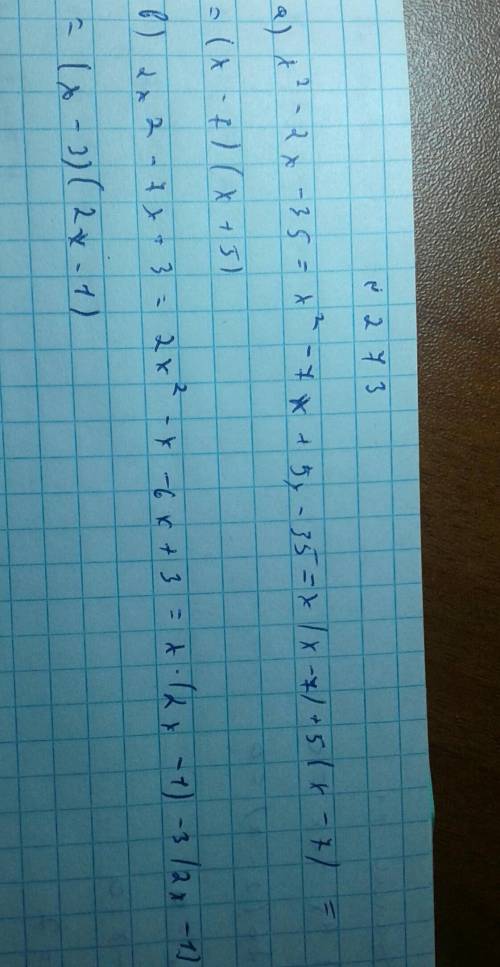 № 273
а) x² - 2x - 35 = x² - 7x + 5x - 35 = x(x - 7) + 5(x - 7) =
= (x - 7)(x + 5)
в) 2x2 - 7x + 3 = 2x² - x - 6x + 3 = x·(2x - 1) - 3(2x - 1)
= (x - 3)(2x - 1)